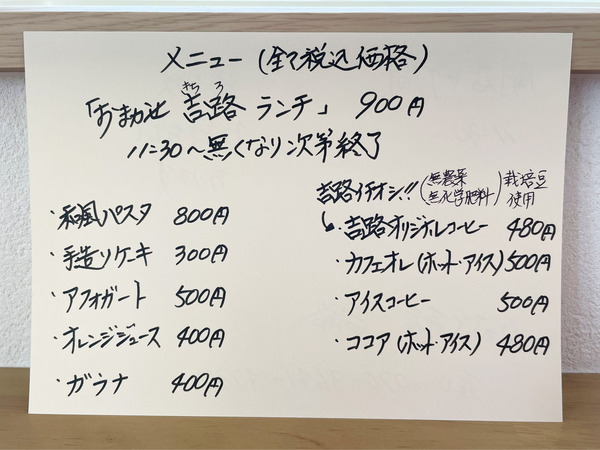 メニュー (全て税込価格)
「おまかせ 吉路 ランチ」 900円
きちろ
11:30〜無くなり次第終了
・和風パスタ 800円
・手造りケーキ 300円
・アフォガート 500円
・オレンジジュース 400円
・ガラナ 400円
吉路イチオシ!! (無農薬 無化学肥料) 栽培豆使用
・吉路オリジナルコーヒー 480円
・カフェオレ (ホット・アイス) 500円
・アイスコーヒー 500円
・ココア (ホット・アイス) 480円